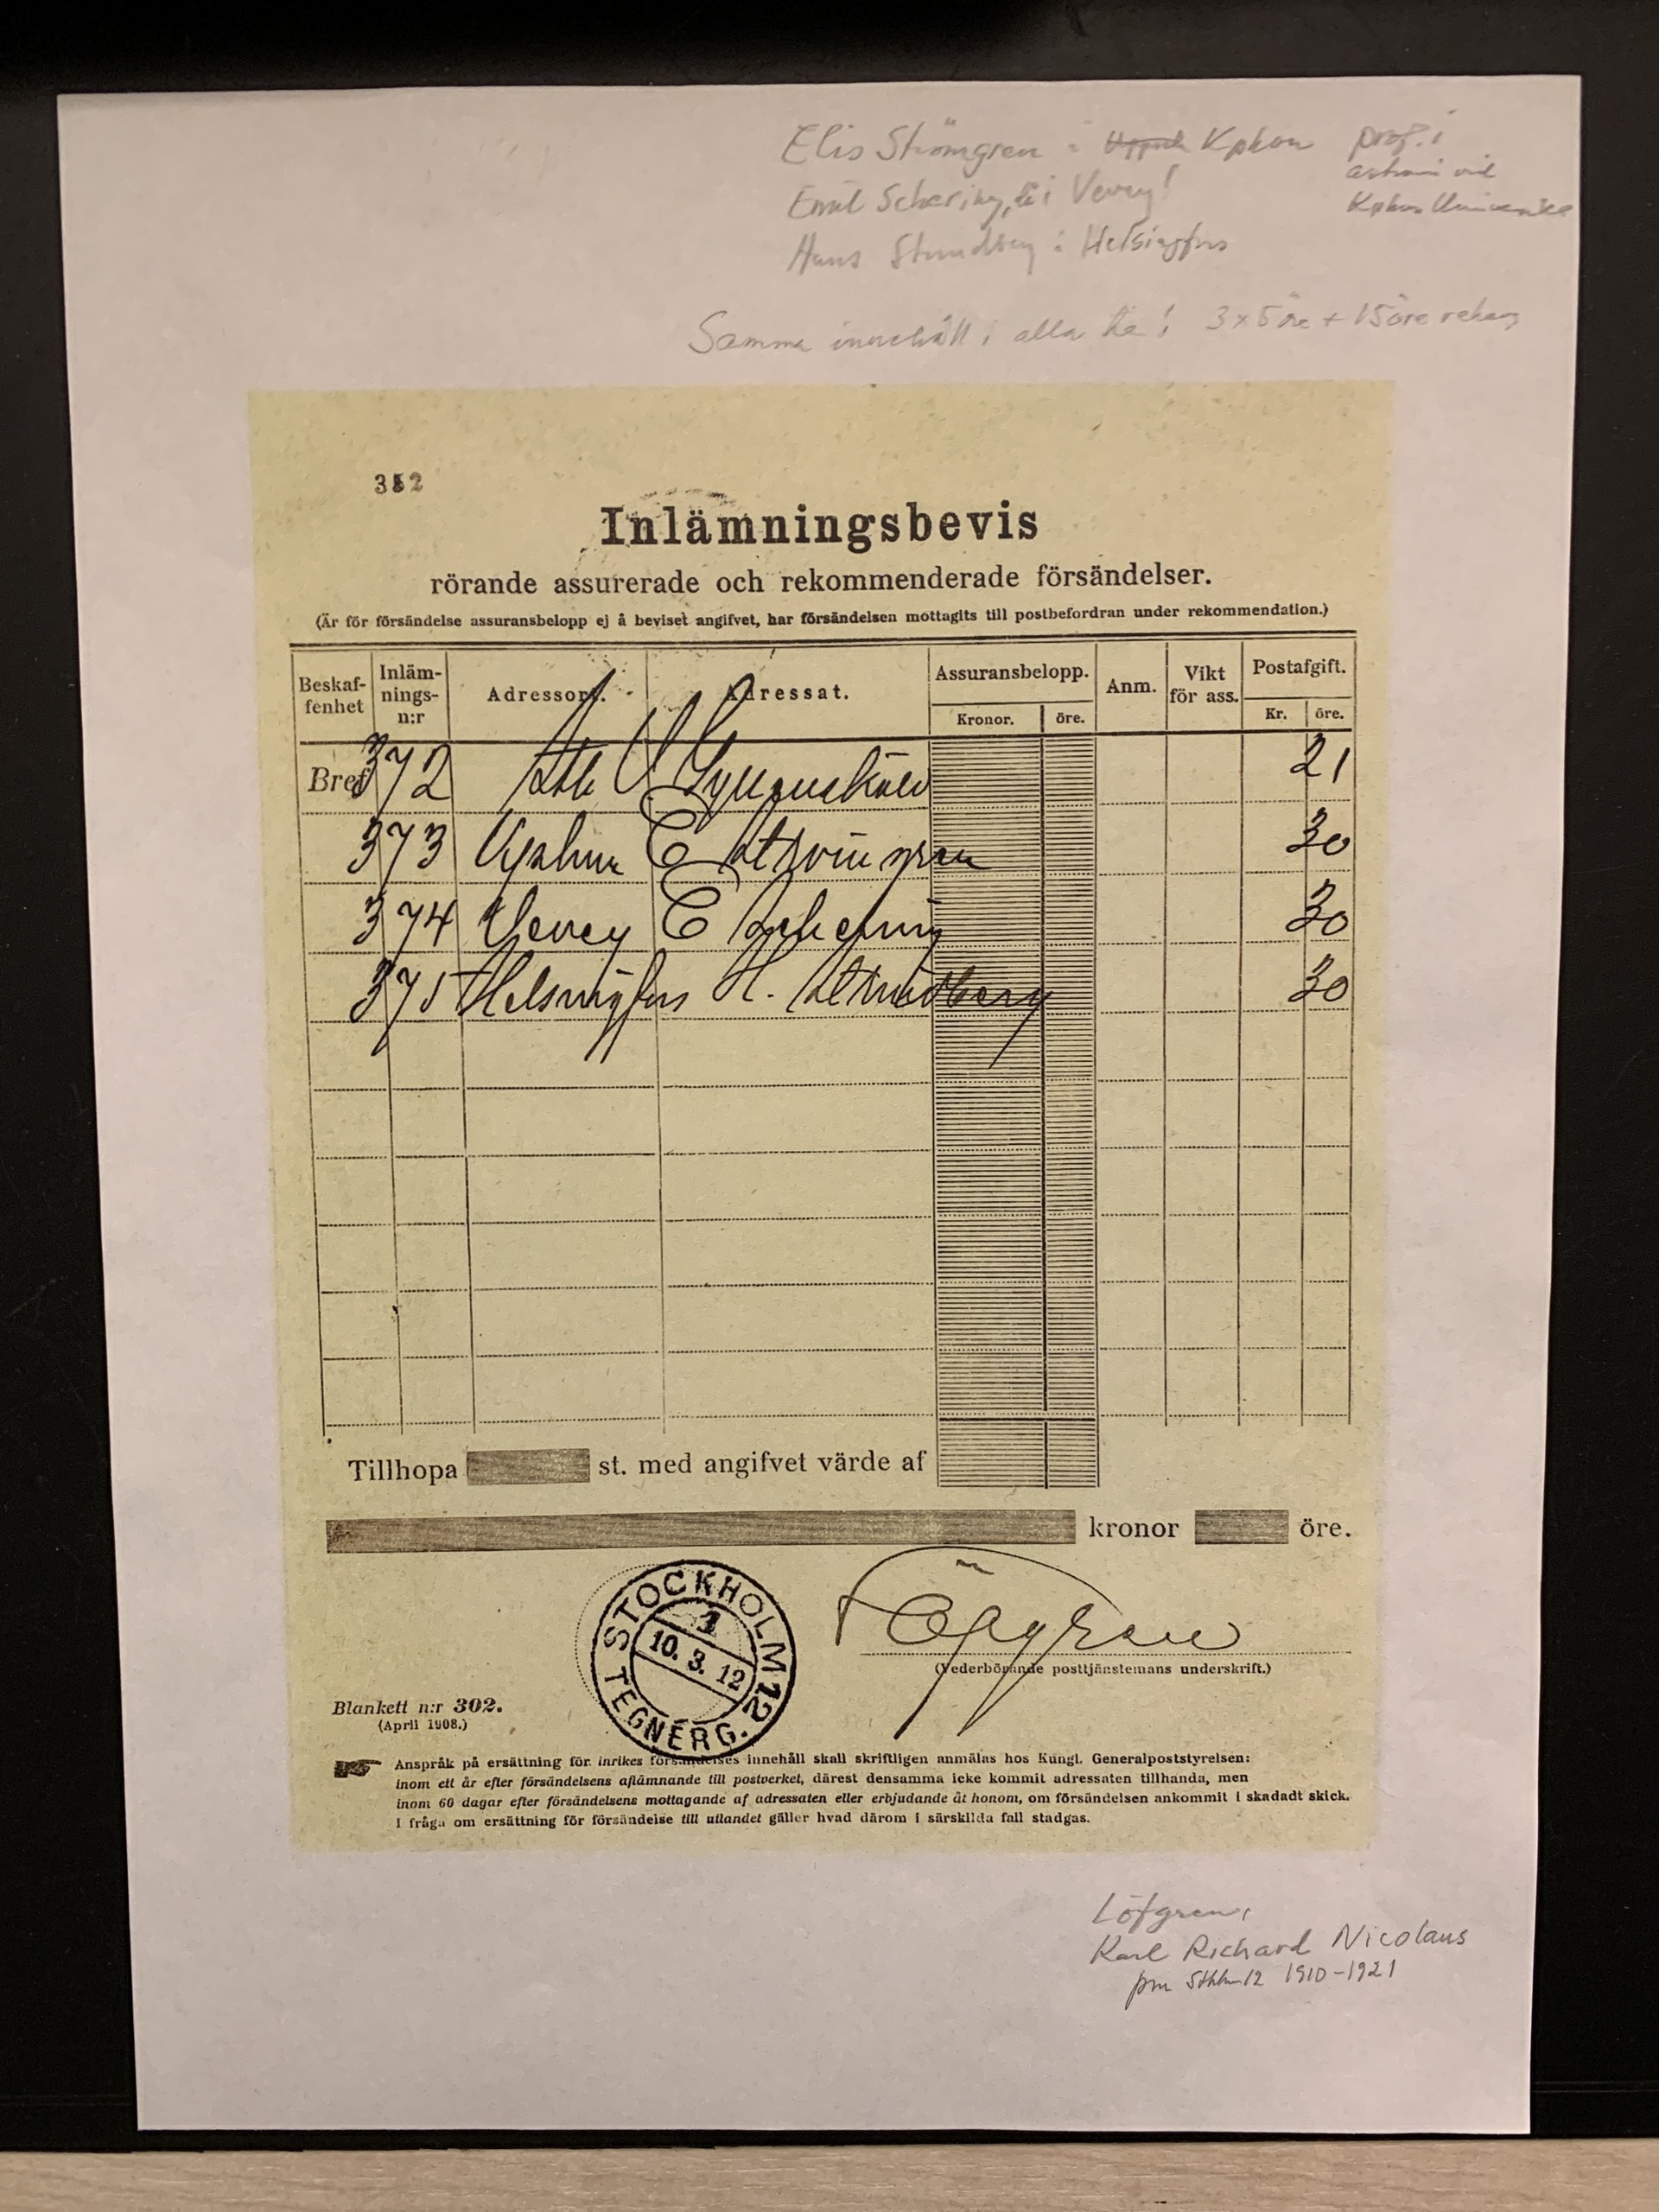 Elis Strömgren i Kphvn prof. i
astron vid
Emil Schering, då i Vevey!
Kphvs Universitet
Hans Strindberg i Helsingfors
Samma innehåll i alla tre! 3 x 5 öre + 15 öre rekom
352
Inlämningsbevis
rörande assurerade och rekommenderade försändelser.
(Är för försändelse assuransbelopp ej å beviset angifvet, har försändelsen mottagits till postbefordran under rekommendation.)
Beskaf-fenhet Inläm-nings-n:r Adressort. Adressat. Assuransbelopp. Anm. Vikt för ass. Postafgift.
Kronor. öre. Kr. öre.
Bref 372 Sthlm 21
373 Kphvn E Strömgren 30
374 Vevey E Schering 30
375 Helsingfors H. Strindberg 30
Tillhopa st. med angifvet värde af
kronor öre.
STOCKHOLM 12
1
10. 3. 12
TEGNÉRG.
Löfgren
(Vederbörande posttjänstemans underskrift.)
Blankett n:r 302.
(April 1908.)
Anspråk på ersättning för inrikes försändelses innehåll skall skriftligen anmälas hos Kungl. Generalpoststyrelsen:
inom ett år efter försändelsens aflämnande till postverket, därest densamma icke kommit adressaten tillhanda, men
inom 60 dagar efter försändelsens mottagande af adressaten eller erbjudande åt honom, om försändelsen ankommit i skadadt skick.
I fråga om ersättning för försändelse till utlandet gäller hvad därom i särskilda fall stadgas.
Löfgren,
Karl Richard Nicolaus
pm Sthlm 12 1910-1921